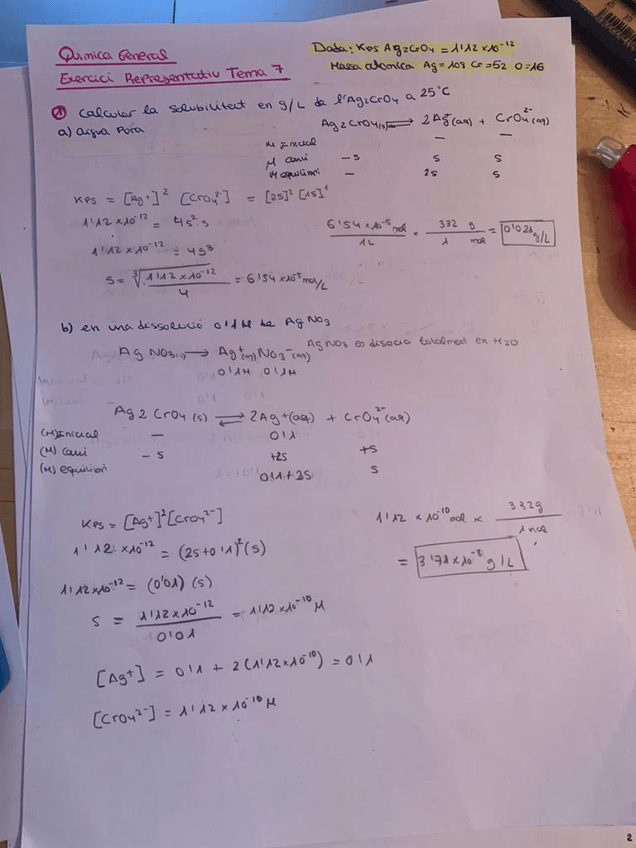 Química General
Exercici Representatiu Tema 7
Dada: Kps Ag2CrO4 = 1'12 x10^-12
Massa atomica Ag=108 Cr=52 O=16
① Calcular la solubilitat en g/L de l'Ag2CrO4 a 25°C
a) aigua pura
Ag2CrO4(s) ⇌ 2Ag+(aq) + CrO4^2-(aq)
M Inicial — —
M canvi -s s s
M equilibri — 2s s
Kps = [Ag+]^2 [CrO4^2-] = [2s]^2 [1s]^1
1'12 x10^-12 = 4s^2 s
1'12 x10^-12 = 4s^3
s = ∛(1'12 x10^-12 / 4) = 6'54 x10^-5 mol/L
6'54 x10^-5 mol / 1L × 332 g / 1 mol = 0'021 g/L
b) en una dissolució 0'1 M de AgNO3
AgNO3(s) → Ag+(aq) NO3-(aq) AgNO3 es disocia totalment en H2O
0'1M 0'1M
Ag2CrO4(s) ⇌ 2Ag+(aq) + CrO4^2-(aq)
(M) Inicial — 0'1
(M) Canvi -s +2s +s
(M) equilibri 0'1+2s s
Kps = [Ag+]^2[CrO4^2-]
1'12 x10^-12 = (2s+0'1)^2(s)
1'12x10^-12 = (0'01) (s)
s = 1'12x10^-12 / 0'01 = 1'12 x10^-10 M
1'12 x 10^-10 mol x 332g / 1 mol =
= 3'71x10^-8 g/L
[Ag+] = 0'1 + 2(1'12x10^-10) = 0'1
[CrO4^2-] = 1'12 x 10^-10 M
2